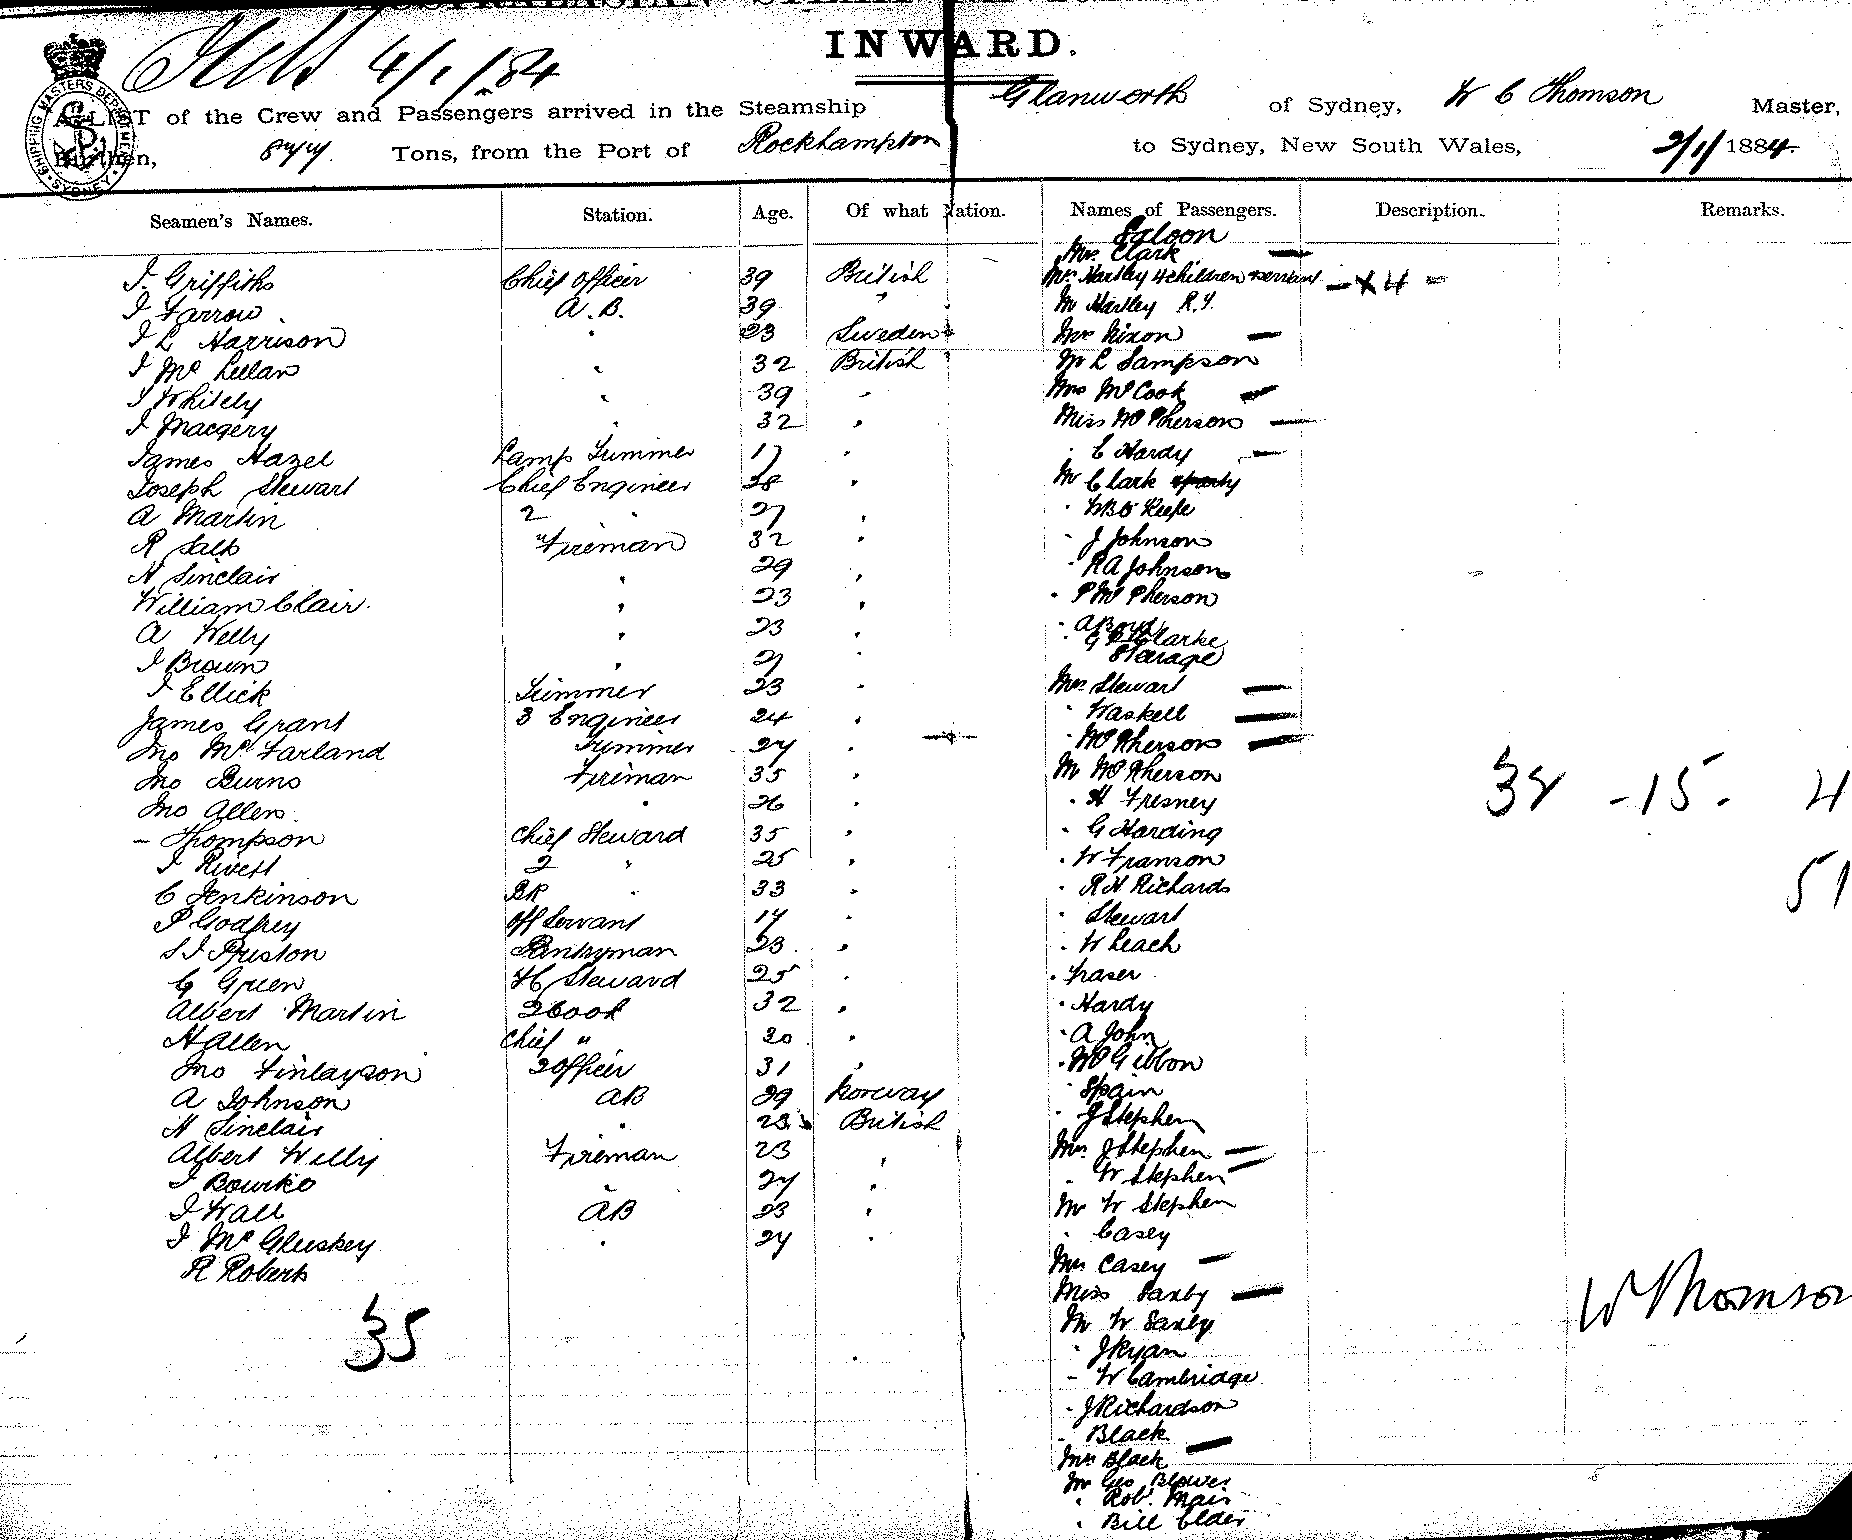 INWARD.
4/1/84
A LIST of the Crew and Passengers arrived in the Steamship Glanworth of Sydney, W C Thomson Master,
Burthen, 877 Tons, from the Port of Rockhampton to Sydney, New South Wales, 2/1/1884.
SHIPPING MASTERS DEPARTMENT SYDNEY
Seamen's Names. Station. Age. Of what Nation. Names of Passengers. Description. Remarks.
Saloon
Mrs. Clark —
J. Griffiths Chief Officer 39 British Mrs. Hartley 4 children & servant — X 4 -
J Farrow A.B. 39 " Mr Hartley R.Y.
J L Harrison " 23 Sweden Mrs Nixon —
J Mc Lellan " 32 British Mr L Sampson
J Whitely " 39 " Mrs McCook —
J Macgery " 32 " Miss McPherson —
James Hazel Lamp Trimmer 17 " " C Hardy —
Joseph Stewart Chief Engineer 38 " Mr Clark
A Martin 2 " 27 " " W B O'Keefe
R Salb Fireman 32 " " J Johnson
H Sinclair " 29 " " R A Johnson
William Clair. " 23 " " P McPherson
A Welly " 23 " " A Boyd
" G B Clarke
Steerage
J Brown " 27 "
J Ellick Trimmer 23 " Mrs. Stewart —
James Grant 3 Engineer 24 " " Waskell —
Jno McFarland Trimmer 27 " " McPherson —
Jno Burns Fireman 35 " Mr McPherson
Jno Allen. " 26 " " H Fresney 34 - 15 - 4
- Thompson Chief Steward 35 " " G Harding
J Rivett 2 " 25 " " W Franson
C Jenkinson BR " 33 " " R H Richards 51
P Godfrey Off Servant 17 " " Stewart
S J Preston Pantryman 23 " " W Leach
G Green FC Steward 25 " " Fraser
Albert Martin 2 Cook 32 " " Hardy
H Allen Chief " 30 " " A John
Jno Finlayson 2 Officer 31 " " McGibbon
A Johnson AB 29 Norway " Spain
H Sinclair " 23 British " J Stephen
Albert Welly Fireman 23 " Mrs. J Stephen —
J Bourke " 27 " " W Stephen —
J Wall AB 23 " Mr W Stephen
J McGluskey " 27 " " Casey
R Roberts Mrs Casey —
Miss Saxby —
W Thomson
35 Mr W Saxby
" J Ryan
" W Cambridge
" J Richardson
" Black
Mrs Black —
Mr Geo Blower
" Robt. Mair
" Bill Elder